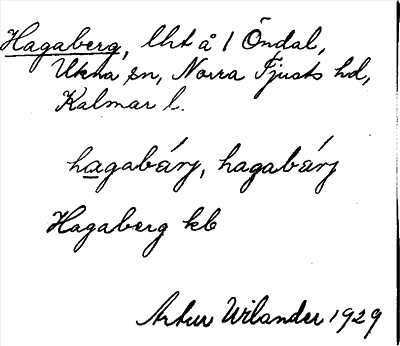 Hagaberg, lht å 1 Öndal,
Ukna sn, Norra Tjusts hd,
Kalmar l.
hagabárj, hagabárj
Hagaberg kb
Artur Wilander 1929